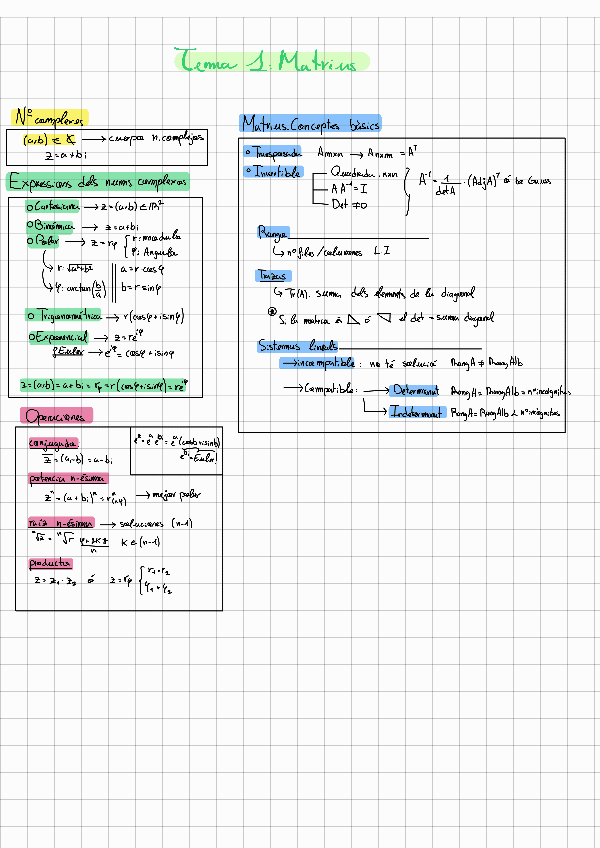 Tema 1: Matrius
Nº complexes
(a,b) ∈ ⟶ cuerpo n. complejos
z = a + bi
Expressions dels nums complexes
Cartesiana ⟶ z = (a,b) ∈ ℝ²
Binómica ⟶ z = a + bi
Polar ⟶ z = rφ { r: módulo
φ: Angulo
r: √a²+b² || a = r cosφ
φ: arctan(b/a) || b = r sinφ
Trigonométrica ⟶ r(cosφ + i sinφ)
Exponencial ⟶ z = re^iφ
Euler ⟶ e^iφ = cosφ + i sinφ
z = (a,b) = a + bi = rφ = r(cosφ + i sinφ) = re^iφ
Operaciones
conjugado:
z̄ = (a,-b) = a - bi
e^z = e^a e^bi = e^a (cosb + i sinb)
e^bi = Euler!
potencia n-ésima
z^n = (a + bi)^n = r^n(n·φ) ⟶ mejor polar
raíz n-ésima ⟶ soluciones (n-1)
K ∈ (n-1)
producto
z = z₁ · z₂ ó z = rφ { r₁ · r₂
φ₁ + φ₂
Matrius. Conceptes bàsics
Trasposada Amxn ⟶ Anxm = A^T
Invertible Quadrada: nxn
A A⁻¹ = I
Det ≠ 0
A⁻¹ = 1/detA · (AdjA)^T ó te Gauss
Rango
nº filas/columnes L I
Trazas
Tr(A). suma dels elements de la diagonal
S. la matriu és ◺ ó ◹ el det = suma diagonal
Sistemes lineals
⟶ incompatible: no té solució RangA ≠ RangA|b
⟶ Compatible: ⟶ Determinat RangA = RangA|b = nºincògnites
⟶ Indeterminat RangA = RangA|b < nºincògnites